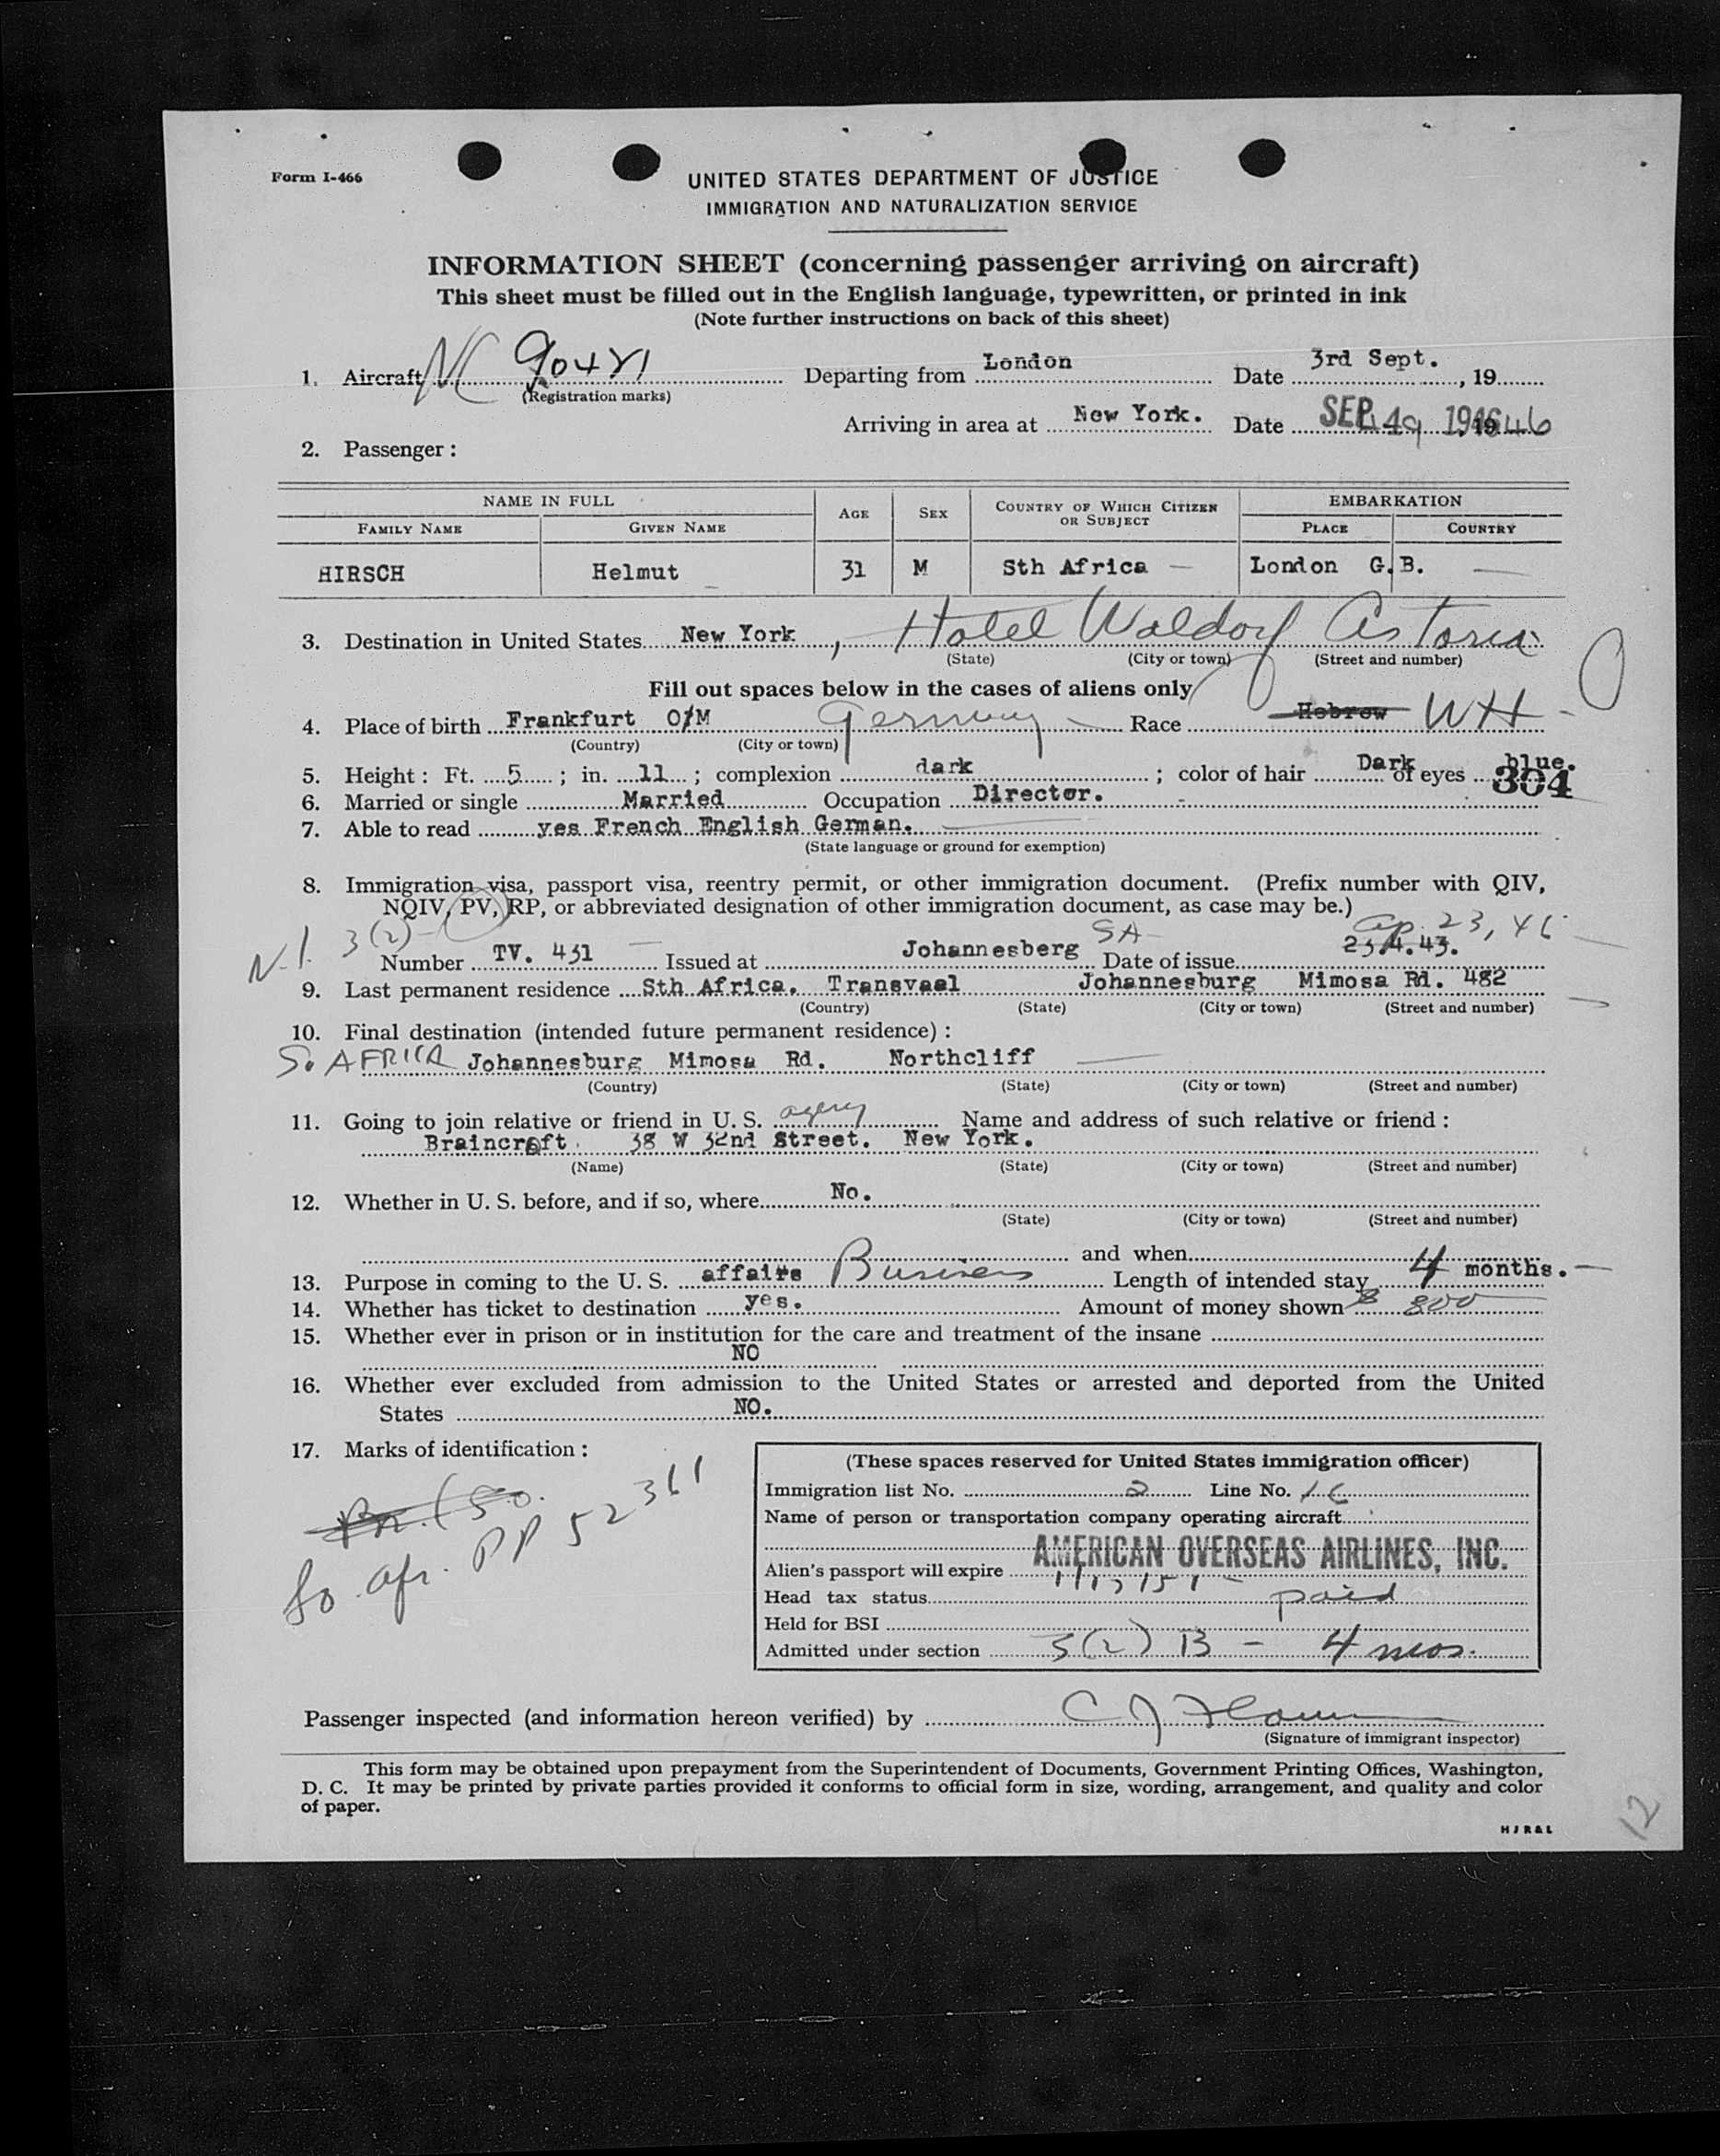 Form I-466
UNITED STATES DEPARTMENT OF JUSTICE
IMMIGRATION AND NATURALIZATION SERVICE
INFORMATION SHEET (concerning passenger arriving on aircraft)
This sheet must be filled out in the English language, typewritten, or printed in ink
(Note further instructions on back of this sheet)
1. Aircraft NC Departing from London Date 3rd Sept. , 19
(Registration marks)
Arriving in area at New York. Date SEP 4 1946
2. Passenger :
NAME IN FULL AGE SEX COUNTRY OF WHICH CITIZEN OR SUBJECT EMBARKATION
FAMILY NAME GIVEN NAME PLACE COUNTRY
HIRSCH Helmut 31 M Sth Africa — London G.B. —
3. Destination in United States New York , Hotel Waldorf Astoria
(State) (City or town) (Street and number)
Fill out spaces below in the cases of aliens only
4. Place of birth Frankfurt O/M Germany Race Hebrew WH -
(Country) (City or town)
5. Height : Ft. 5 ; in. 11 ; complexion dark ; color of hair Dark of eyes blue.
304
6. Married or single Married Occupation Director.
7. Able to read yes French English German.
(State language or ground for exemption)
8. Immigration visa, passport visa, reentry permit, or other immigration document. (Prefix number with QIV,
NQIV, PV, RP, or abbreviated designation of other immigration document, as case may be.)
N.I. 3(2) SA Ap. 23, 46
Number TV. 431 — Issued at Johannesberg Date of issue 23.4.43.
9. Last permanent residence Sth Africa. Transvaal Johannesburg Mimosa Rd. 482
(Country) (State) (City or town) (Street and number)
10. Final destination (intended future permanent residence) :
So AFRICA Johannesburg Mimosa Rd. Northcliff
(Country) (State) (City or town) (Street and number)
11. Going to join relative or friend in U. S. agency Name and address of such relative or friend :
Braincroft 38 W 32nd Street. New York.
(Name) (State) (City or town) (Street and number)
12. Whether in U. S. before, and if so, where No.
(State) (City or town) (Street and number)
and when
13. Purpose in coming to the U. S. affairs Business Length of intended stay 4 months.
14. Whether has ticket to destination yes. Amount of money shown $ 800
15. Whether ever in prison or in institution for the care and treatment of the insane
NO
16. Whether ever excluded from admission to the United States or arrested and deported from the United
States NO.
17. Marks of identification :
So. Afr. PP 52361
(These spaces reserved for United States immigration officer)
Immigration list No. 2 Line No. 16
Name of person or transportation company operating aircraft
AMERICAN OVERSEAS AIRLINES, INC.
Alien's passport will expire
Head tax status paid
Held for BSI
Admitted under section 3(2) B - 4 mos.
Passenger inspected (and information hereon verified) by
(Signature of immigrant inspector)
This form may be obtained upon prepayment from the Superintendent of Documents, Government Printing Offices, Washington,
D. C. It may be printed by private parties provided it conforms to official form in size, wording, arrangement, and quality and color
of paper.
H J R & L
12